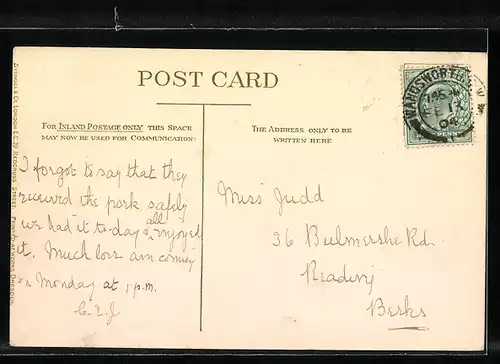 POST CARD
FOR INLAND POSTAGE ONLY THIS SPACE
MAY NOW BE USED FOR COMMUNICATION:
THE ADDRESS ONLY TO BE
WRITTEN HERE
WANDSWORTH S.W
PENNY
I forgot to say that they
received the pork safely
we had it to-day & all enjoyed
it. Much love am coming
on Monday at 1 p.m.
Miss Judd
36 Bulmershe Rd.
Reading
Berks